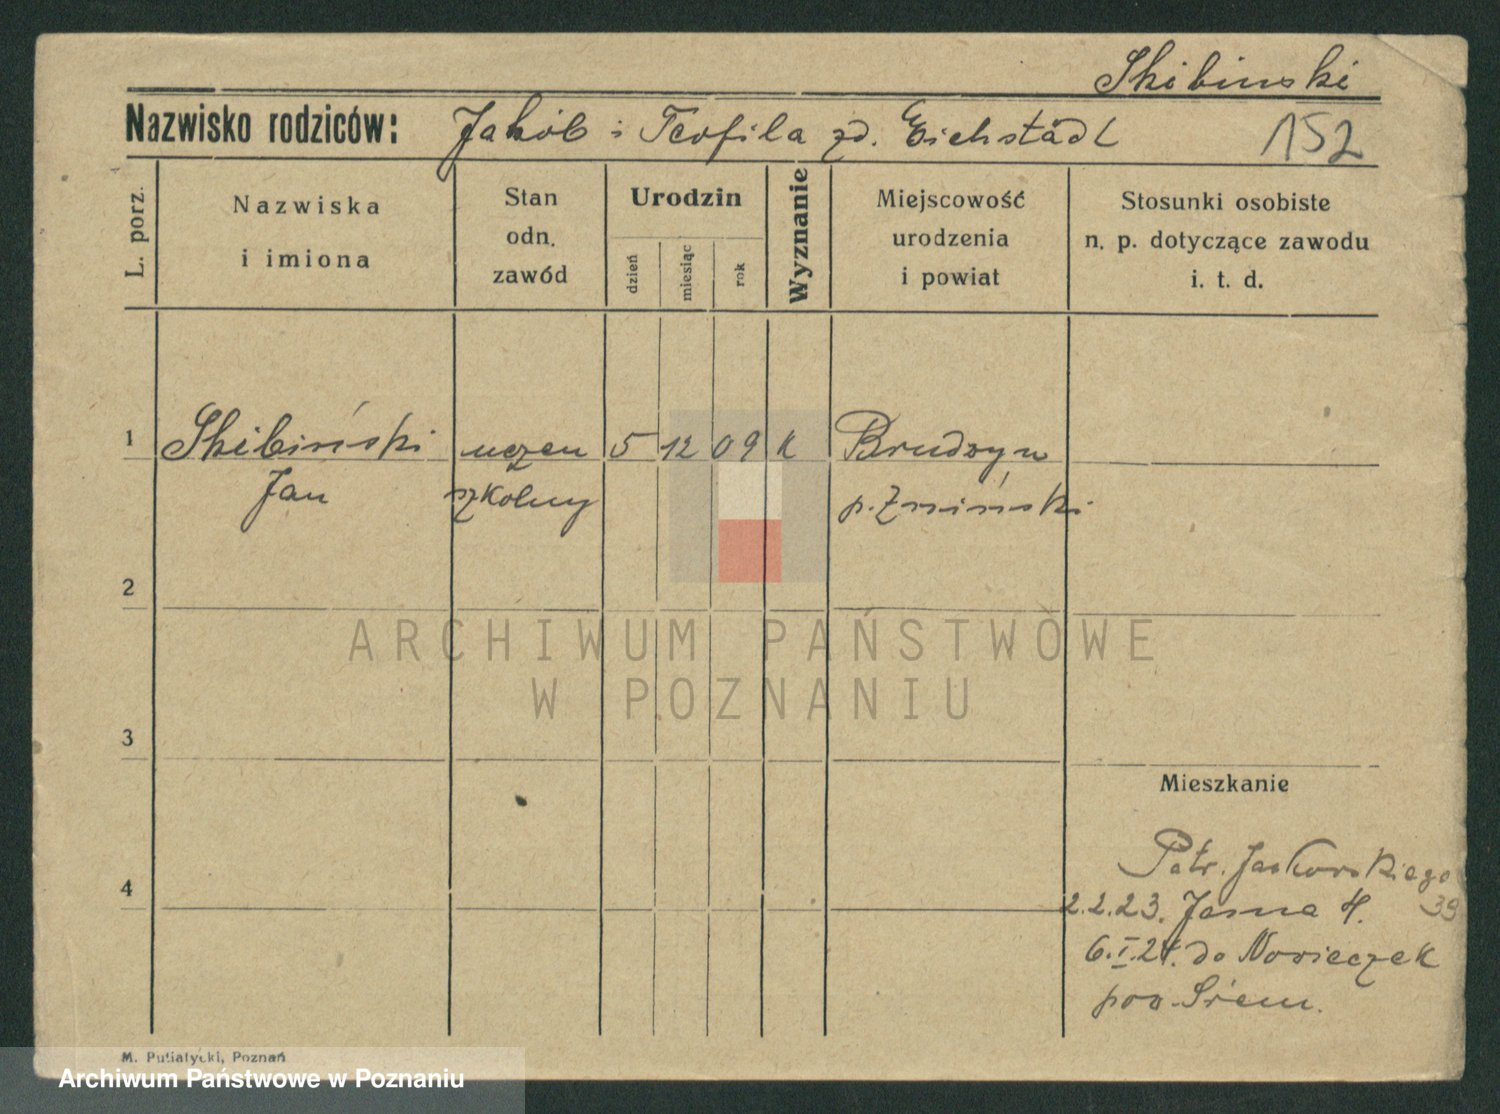 Skibinski
Nazwisko rodziców: Jakób i Teofila zd. Eichstädt 152
L. porz.
Nazwiska
i imiona
Stan
odn.
zawód
Urodzin
dzień
miesiąc
rok
Wyznanie
Miejscowość
urodzenia
i powiat
Stosunki osobiste
n. p. dotyczące zawodu
i. t. d.
1 Skibiński uczen 5 12 09 K Brudzyn
Jan szkolny p. Żniński
2
ARCHIWUM PAŃSTWOWE
W POZNANIU
3
Mieszkanie
4
Patr. Jackowskiego
39
2.2.23. Jasna 4.
6.I.24. do Nowieczek
pow. Śrem.
M. Putiatycki, Poznań
Archiwum Państwowe w Poznaniu